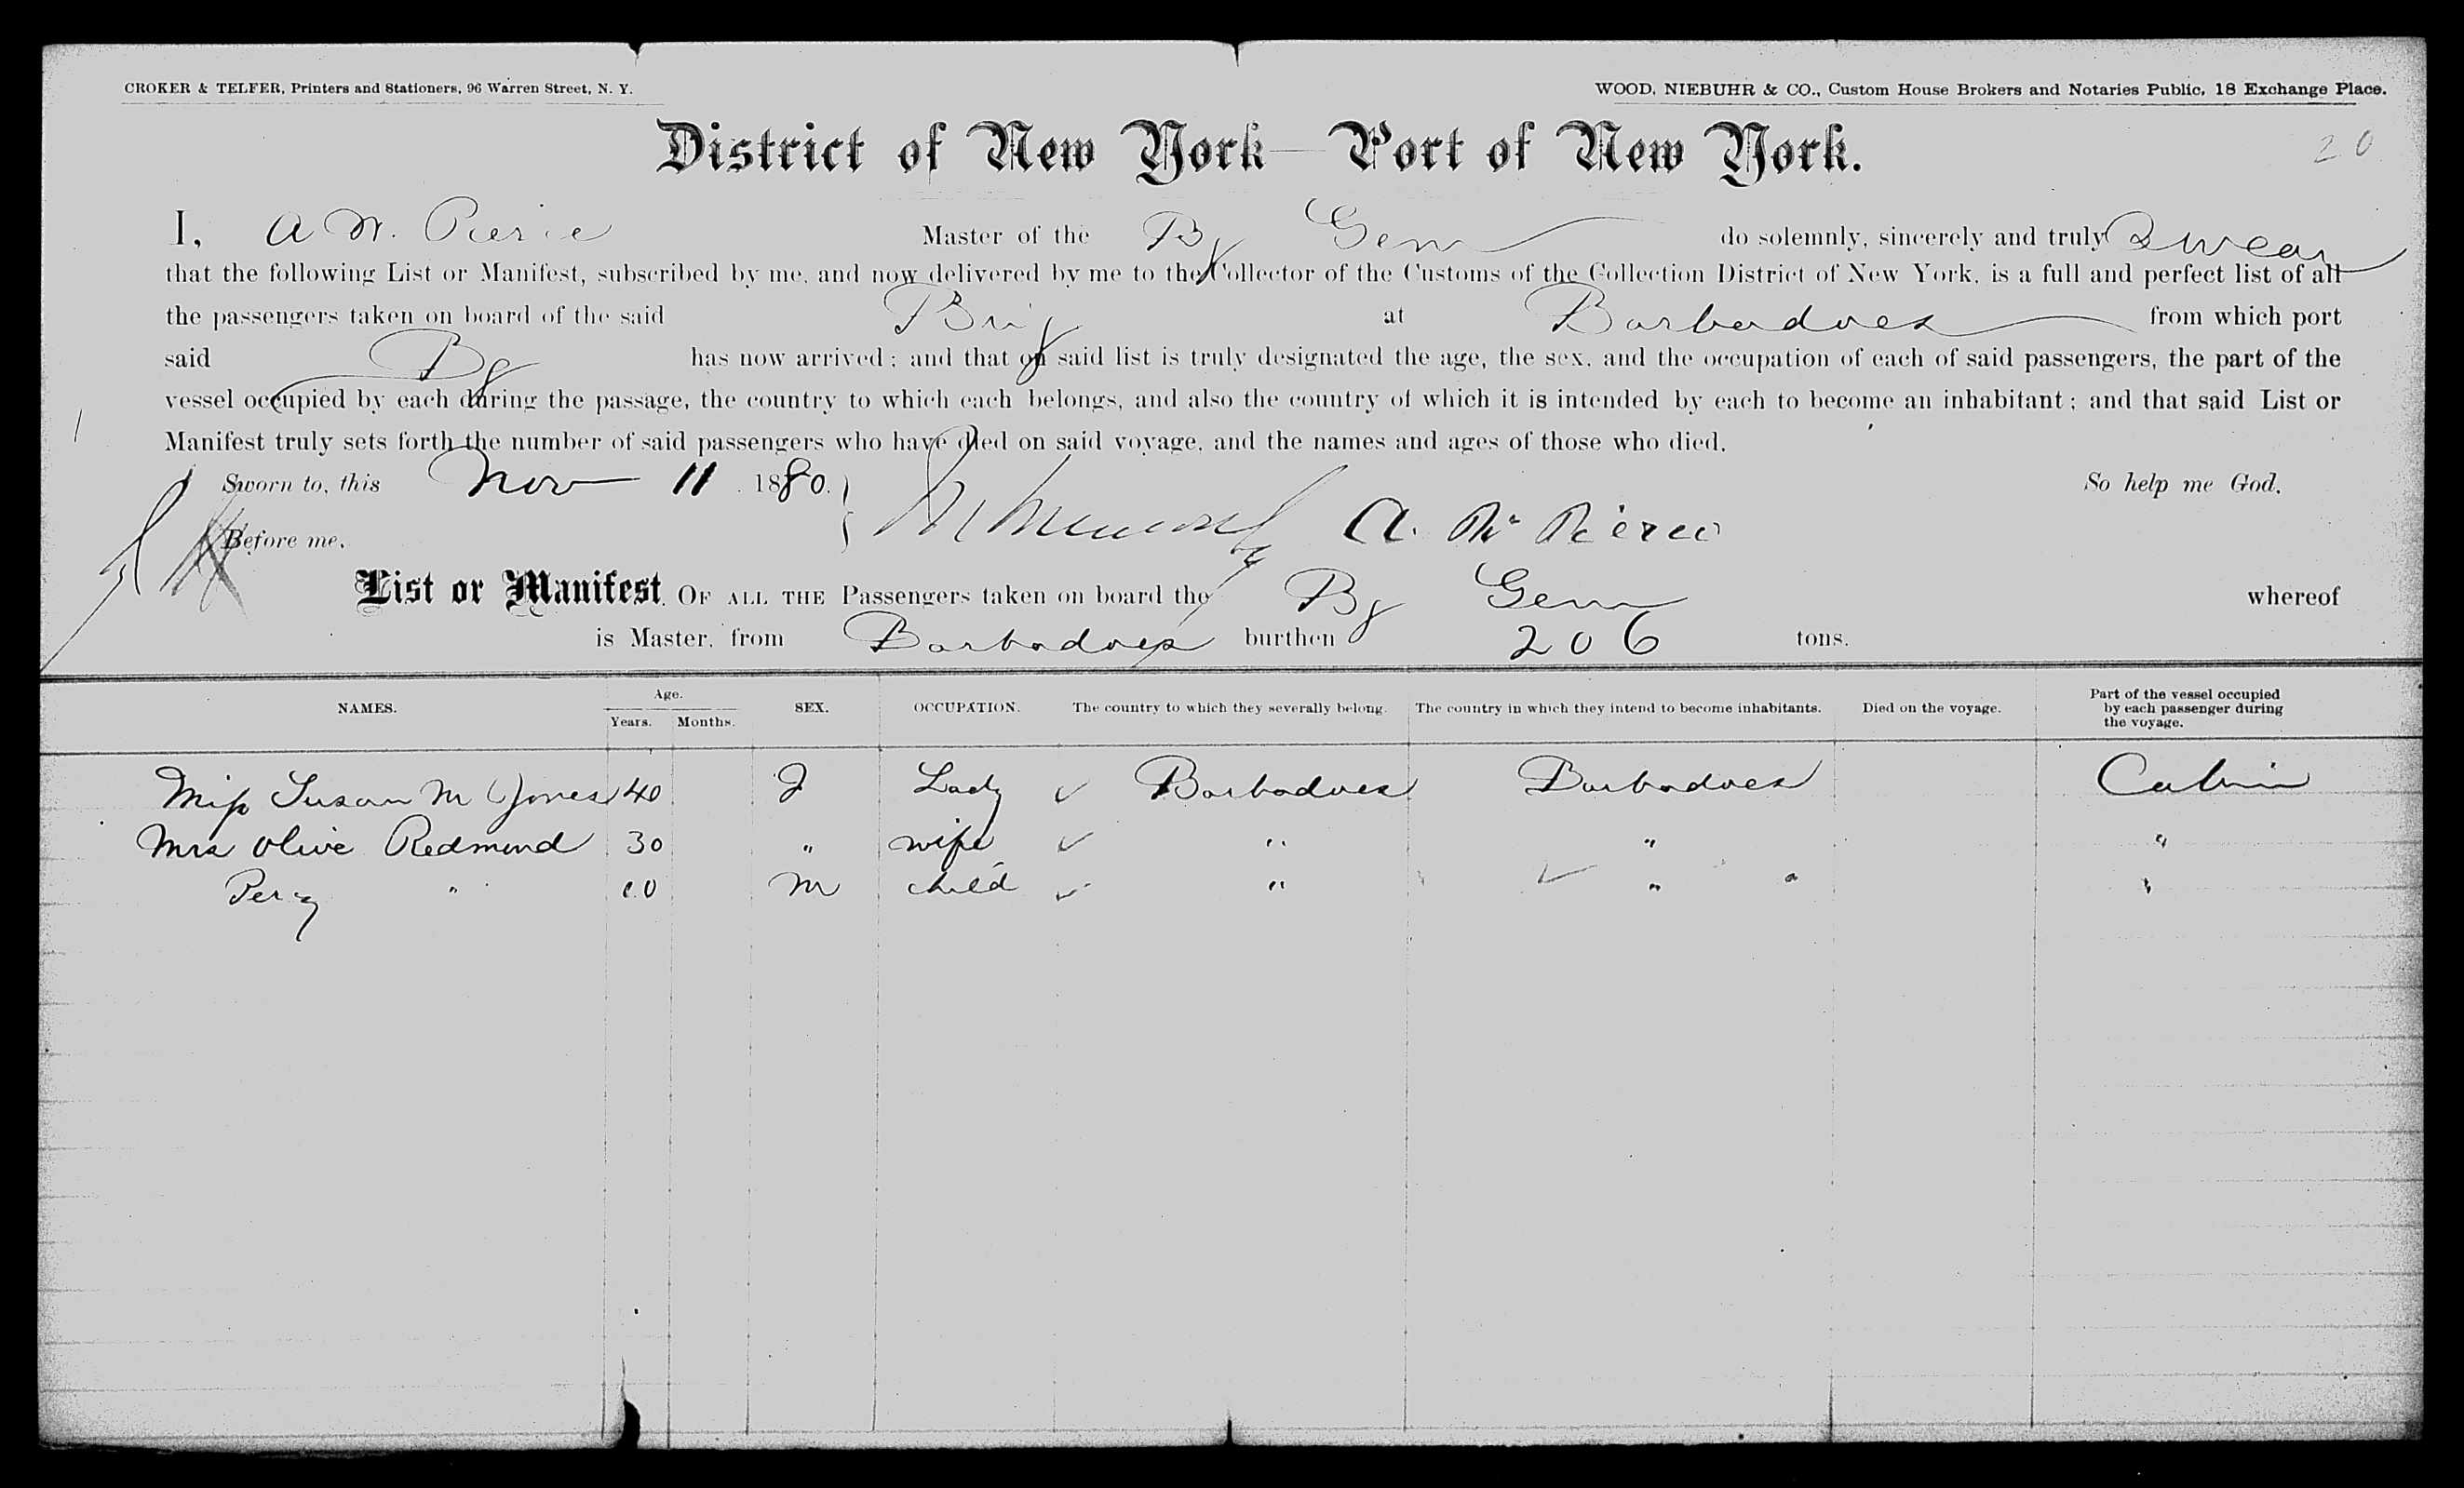 CROKER & TELFER, Printers and Stationers, 96 Warren Street, N. Y.
WOOD, NIEBUHR & CO., Custom House Brokers and Notaries Public, 18 Exchange Place.
District of New York—Port of New York.
20
I, A. W. Pierce Master of the Bg Gem do solemnly, sincerely and truly Swear
that the following List or Manifest, subscribed by me, and now delivered by me to the Collector of the Customs of the Collection District of New York, is a full and perfect list of all
the passengers taken on board of the said Brig at Barbadoes from which port
said Bg has now arrived; and that on said list is truly designated the age, the sex, and the occupation of each of said passengers, the part of the
vessel occupied by each during the passage, the country to which each belongs, and also the country of which it is intended by each to become an inhabitant; and that said List or
Manifest truly sets forth the number of said passengers who have died on said voyage, and the names and ages of those who died.
Sworn to, this Nov 11 1880. So help me God.
Before me, A. W. Pierce
List or Manifest, OF ALL THE Passengers taken on board the Bg Gem whereof
is Master, from Barbadoes burthen 206 tons.
NAMES. Age. Years. Months. SEX. OCCUPATION. The country to which they severally belong. The country in which they intend to become inhabitants. Died on the voyage. Part of the vessel occupied by each passenger during the voyage.
Miss Susan M Jones 40 F Lady ✓ Barbadoes Barbadoes Cabin
Mrs Olive Redmond 30 " wife ✓ " " "
Percy " M child ✓ " ✓ " "